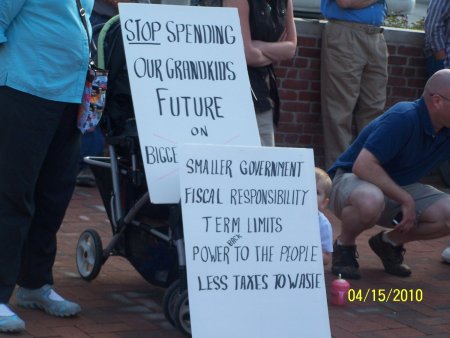 STOP SPENDING
OUR GRANDKIDS
FUTURE
ON
BIGGE
SMALLER GOVERNMENT
FISCAL RESPONSIBILITY
TERM LIMITS
POWER BACK TO THE PEOPLE
LESS TAXES TO WASTE
04/15/2010